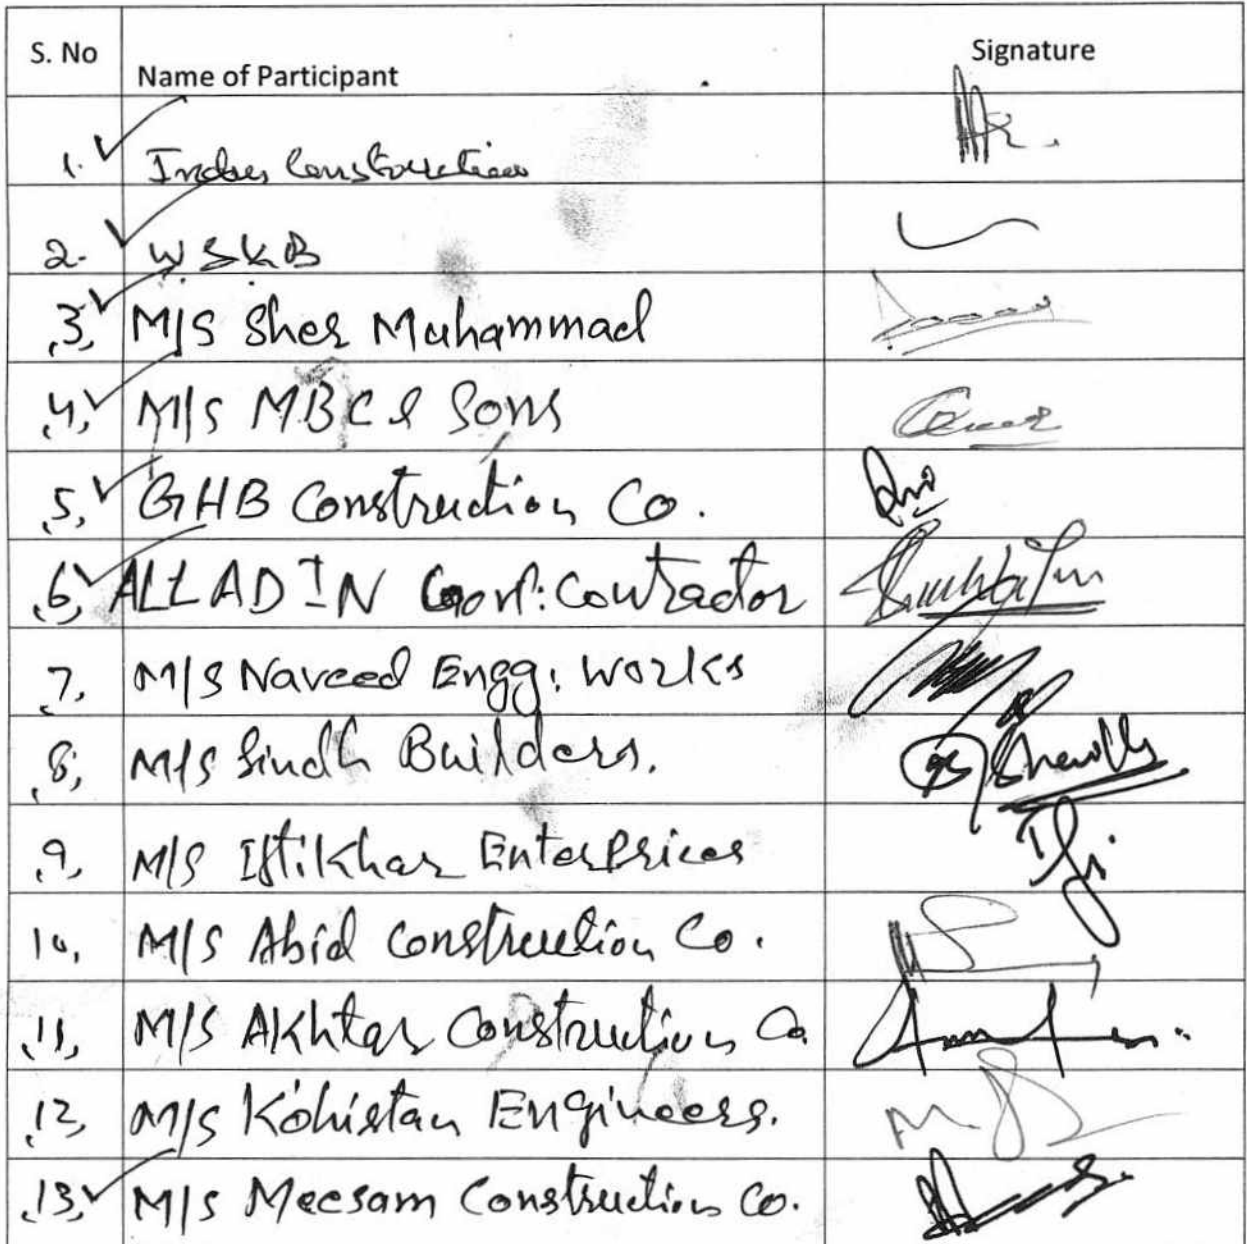 S. No Name of Participant Signature
1. Indus Construction
2. W S K B
3, M/S Sher Muhammad
4, M/S MBC & Sons
5, GHB Construction Co.
6, ALLADIN Govt: Contractor
7, M/S Naveed Engg: Works
8, M/S Sindh Builders.
9, M/S Iftikhar Enterprices
10, M/S Abid Construction Co.
11, M/S Akhtar Construction Co
12, M/S Kohistan Engineers.
13, M/S Meesam Construction Co.